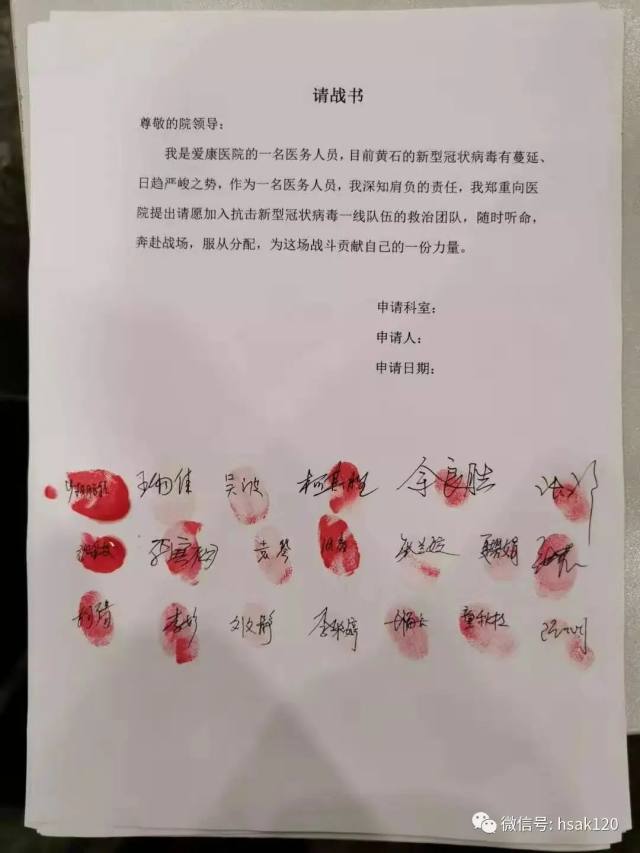 请战书
尊敬的院领导：
我是爱康医院的一名医务人员，目前黄石的新型冠状病毒有蔓延、
日趋严峻之势，作为一名医务人员，我深知肩负的责任，我郑重向医
院提出请愿加入抗击新型冠状病毒一线队伍的救治团队，随时听命，
奔赴战场，服从分配，为这场战斗贡献自己的一份力量。
申请科室：
申请人：
申请日期：
吴波 余良胜
胡倩 李彬 刘文静 童秋枝
微信号: hsak120